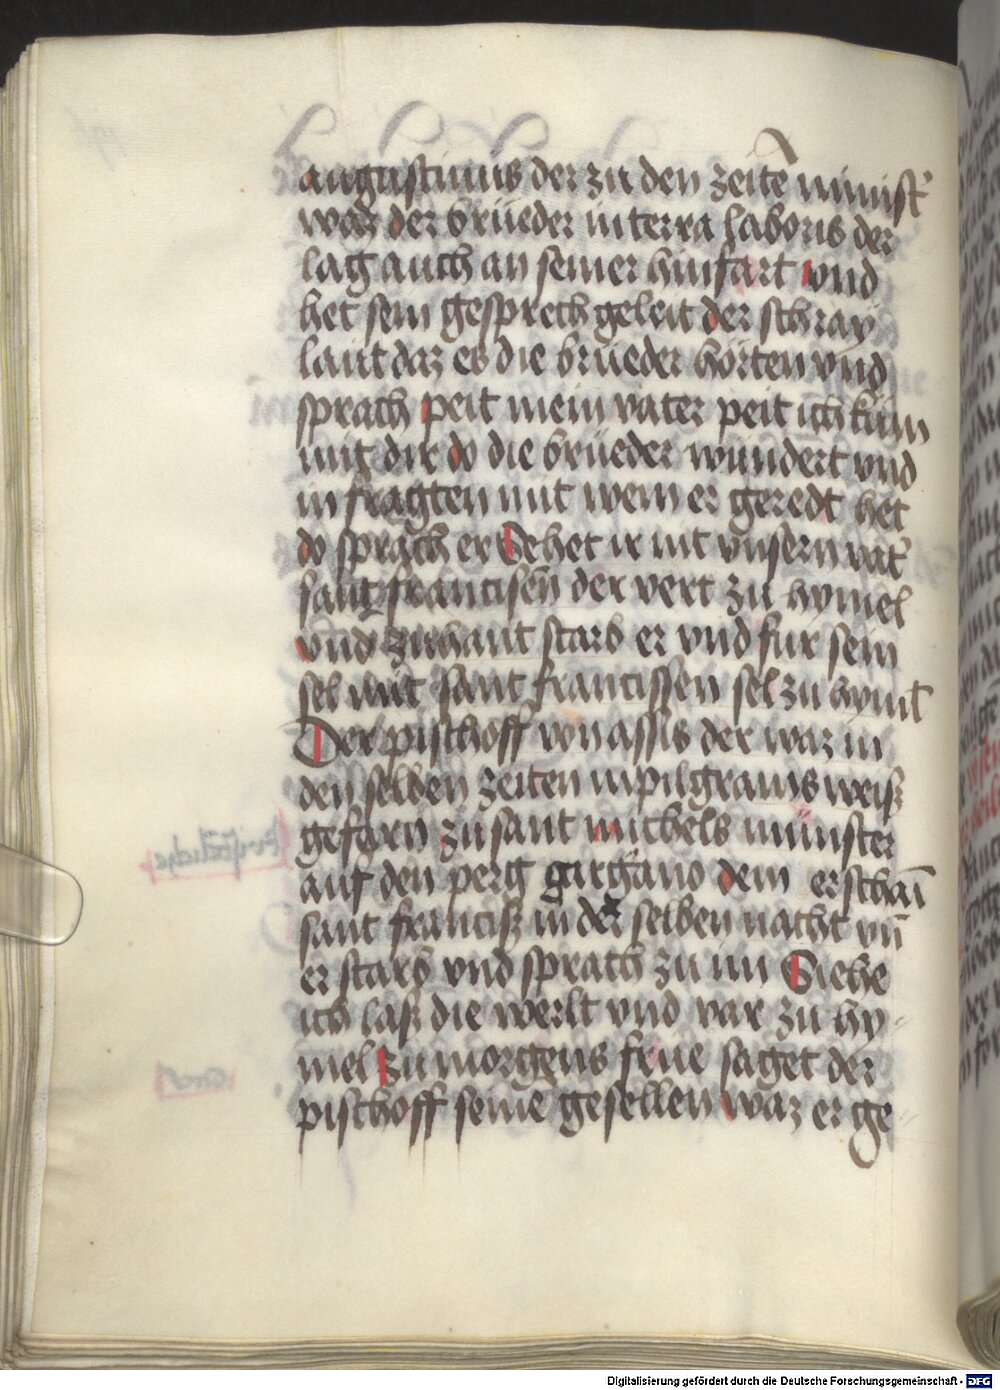 augustinus der zu den zeitē minist̉
waz der brüeder in terra laboris der
lag auch an seiner hinfart vnd
het sein gesprech geleit der schray
laut daz es die brüeder hörten vnd
sprach peit mein vater peit ich küm
mit dir do die brüeder wundert vnd
in fragten mit wem er geredt het
do sprach er Sehet ir nit vnsern vat̉
sant francisen der vert zu hymel
vnd zuhant starb er vnd fur sein
sel mit sant francissen sel zu hyml
Der pischoff von assis der waz in
den selben zeiten in pilgrams weiß
gefarn zu sant michels münster
auf den perg gargano dem erschaī
sant francisz in der selben nacht vn̄
er starb vnd sprach zu im Siehe
ich laß die werlt vnd var zu hy
mel zu morgens frue saget der
pischoff seine gesellen waz er ge
Digitalisierung gefördert durch die Deutsche Forschungsgemeinschaft - DFG